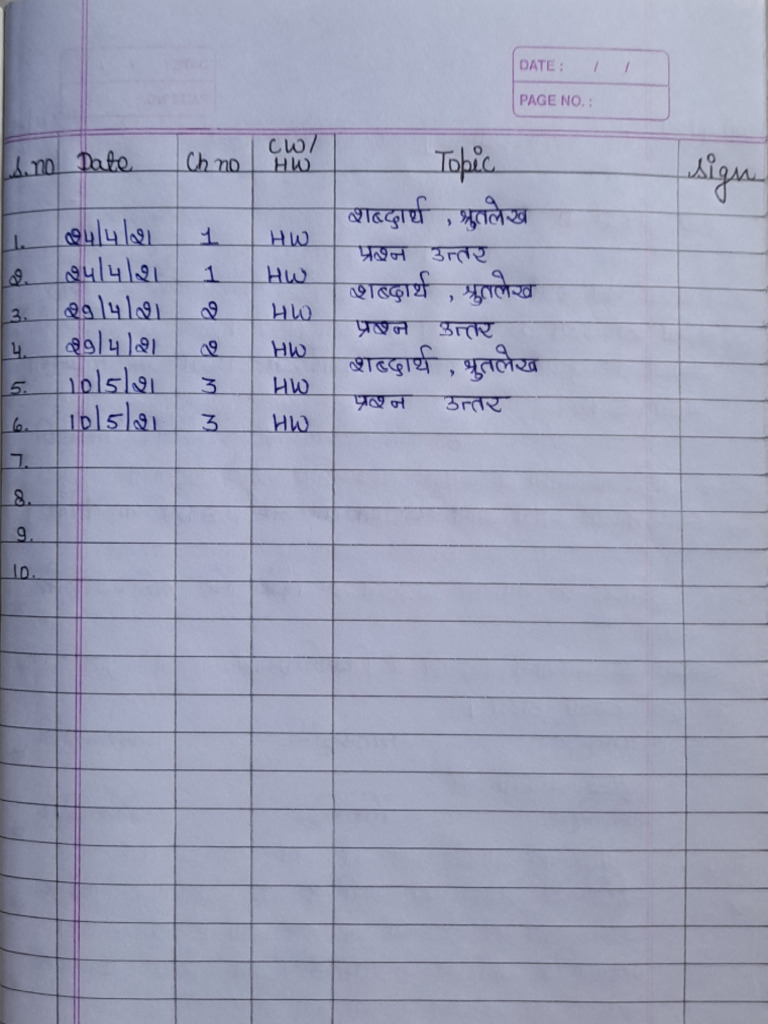 DATE : / /
PAGE NO. :
S.no Date Ch no CW/HW Topic Sign
1. 24/4/21 1 HW शब्दार्थ , श्रुतलेख
2. 24/4/21 1 HW प्रश्न उत्तर
3. 29/4/21 2 HW शब्दार्थ , श्रुतलेख
4. 29/4/21 2 HW प्रश्न उत्तर
5. 10/5/21 3 HW शब्दार्थ , श्रुतलेख
6. 10/5/21 3 HW प्रश्न उत्तर
7.
8.
9.
10.